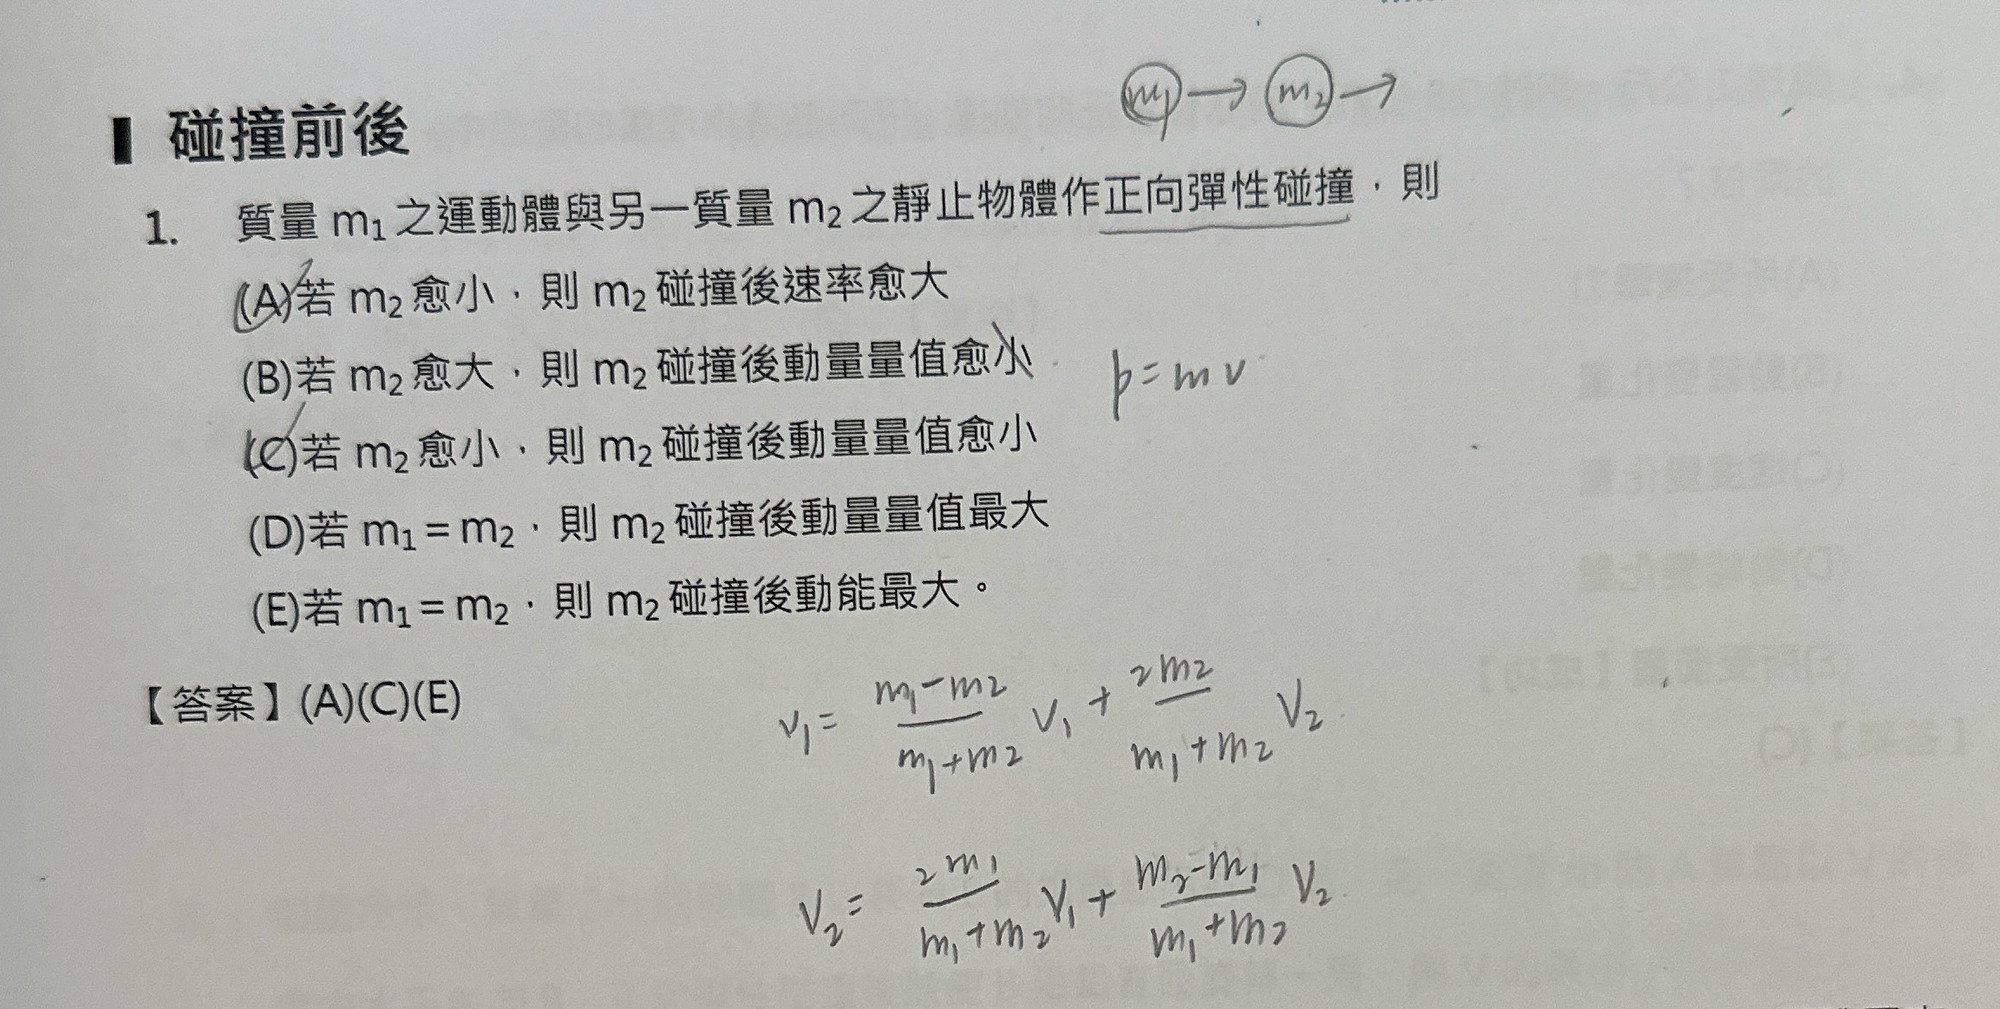 m₁ → m₂ →
碰撞前後
1. 質量 m₁ 之運動體與另一質量 m₂ 之靜止物體作正向彈性碰撞，則
(A)若 m₂ 愈小，則 m₂ 碰撞後速率愈大
(B)若 m₂ 愈大，則 m₂ 碰撞後動量量值愈小
p=mv
(C)若 m₂ 愈小，則 m₂ 碰撞後動量量值愈小
(D)若 m₁ = m₂，則 m₂ 碰撞後動量量值最大
(E)若 m₁ = m₂，則 m₂ 碰撞後動能最大。
【答案】(A)(C)(E)
v₁ = (m₁-m₂)/(m₁+m₂) v₁ + 2m₂/(m₁+m₂) v₂
v₂ = 2m₁/(m₁+m₂) v₁ + (m₂-m₁)/(m₁+m₂) v₂